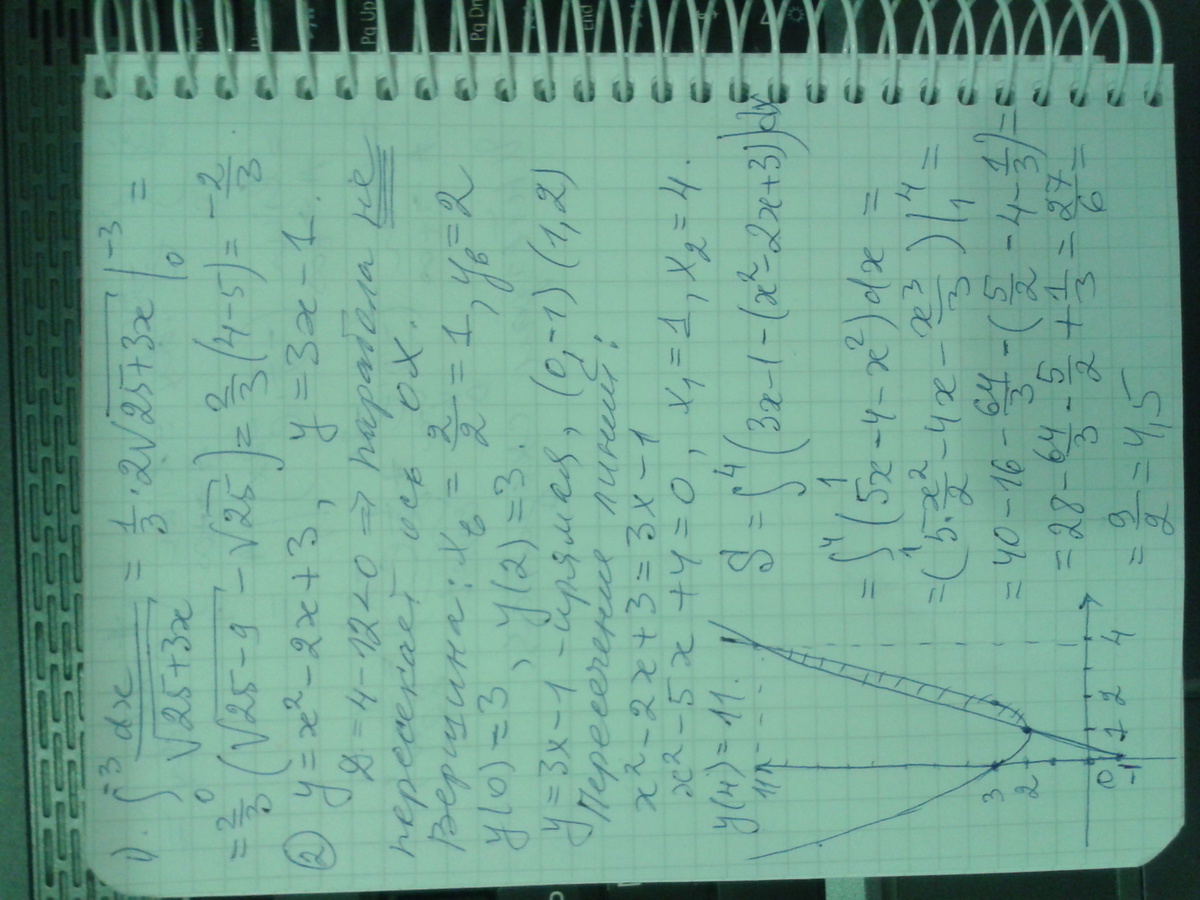 1). ∫₀⁻³ dx/√(25+3x) = 1/3 · 2√(25+3x) |₀⁻³ =
= 2/3 (√(25-9) - √25) = 2/3 (4-5) = -2/3
② y = x² - 2x + 3, y = 3x - 1.
D = 4 - 12 < 0 ⇒ парабола не
пересекает ось OX.
Вершина: x_в = 2/2 = 1, y_в = 2
y(0) = 3, y(2) = 3.
y = 3x - 1 - прямая, (0, -1) (1, 2)
Пересечение линий:
x² - 2x + 3 = 3x - 1
x² - 5x + 4 = 0, x₁ = 1, x₂ = 4.
y(4) = 11.
S = ∫₁⁴ (3x - 1 - (x² - 2x + 3)) dx
= ∫₁⁴ (5x - 4 - x²) dx =
= (5 · x²/2 - 4x - x³/3) |₁⁴ =
= 40 - 16 - 64/3 - (5/2 - 4 - 1/3) =
= 28 - 64/3 - 5/2 + 1/3 = 27/6 =
= 9/2 = 4,5
11
3
2
0 1 2 4
-1
Pg Up
Pg Dn
End